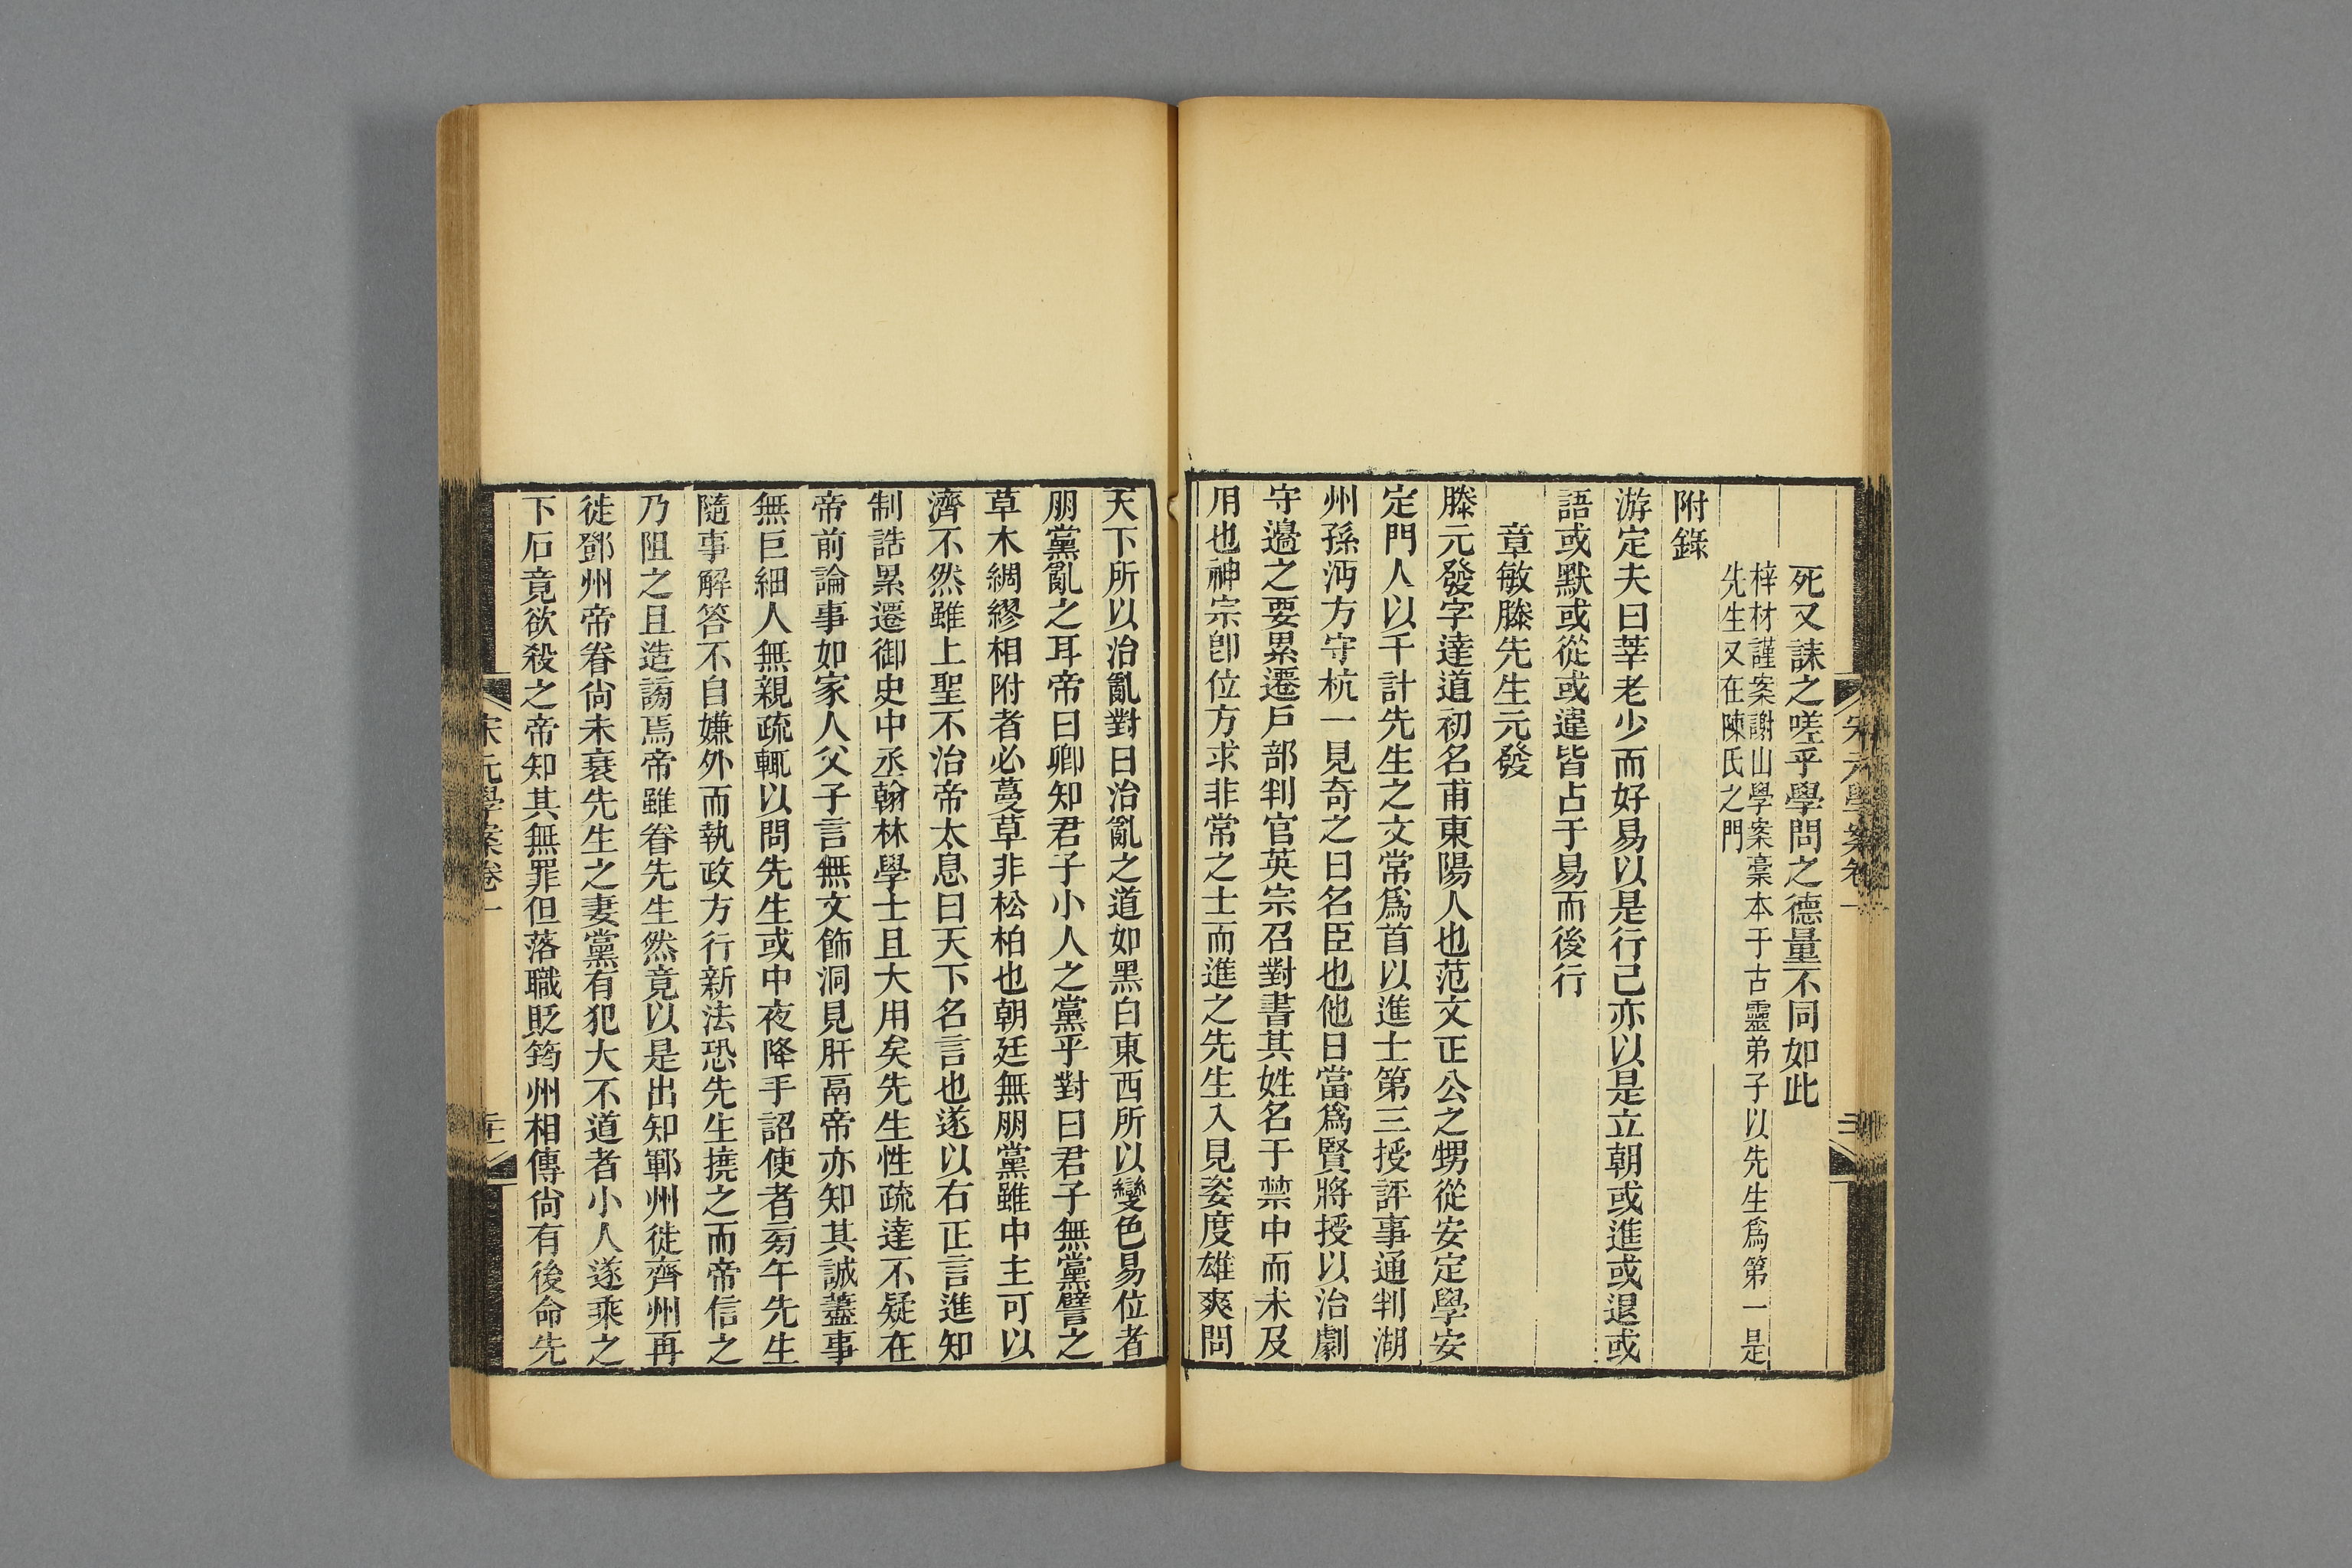 死又誄之嗟乎學問之德量不同如此
梓材謹案謝山學案稾本于古靈弟子以先生爲第一是
先生又在陳氏之門
附錄
游定夫曰莘老少而好易以是行己亦以是立朝或進或退或
語或默或從或違皆占于易而後行
章敏滕先生元發
滕元發字達道初名甫東陽人也范文正公之甥從安定學安
定門人以千計先生之文常爲首以進士第三授評事通判湖
州孫沔方守杭一見奇之曰名臣也他日當爲賢將授以治劇
守邊之要累遷戶部判官英宗召對書其姓名于禁中而未及
用也神宗卽位方求非常之士而進之先生入見姿度雄爽問
天下所以治亂對曰治亂之道如黑白東西所以變色易位者
朋黨亂之耳帝曰卿知君子小人之黨乎對曰君子無黨譬之
草木綢繆相附者必蔓草非松柏也朝廷無朋黨雖中主可以
濟不然雖上聖不治帝太息曰天下名言也遂以右正言進知
制誥累遷御史中丞翰林學士且大用矣先生性疏達不疑在
帝前論事如家人父子言無文飾洞見肝鬲帝亦知其誠蓋事
無巨細人無親疏輒以問先生或中夜降手詔使者旁午先生
隨事解答不自嫌外而執政方行新法恐先生撓之而帝信之
乃阻之且造謗焉帝雖眷先生然竟以是出知鄆州徙齊州再
徙鄧州帝眷尙未衰先生之妻黨有犯大不道者小人遂乘之
下石竟欲殺之帝知其無罪但落職貶筠州相傳尙有後命先
宋元學案卷一